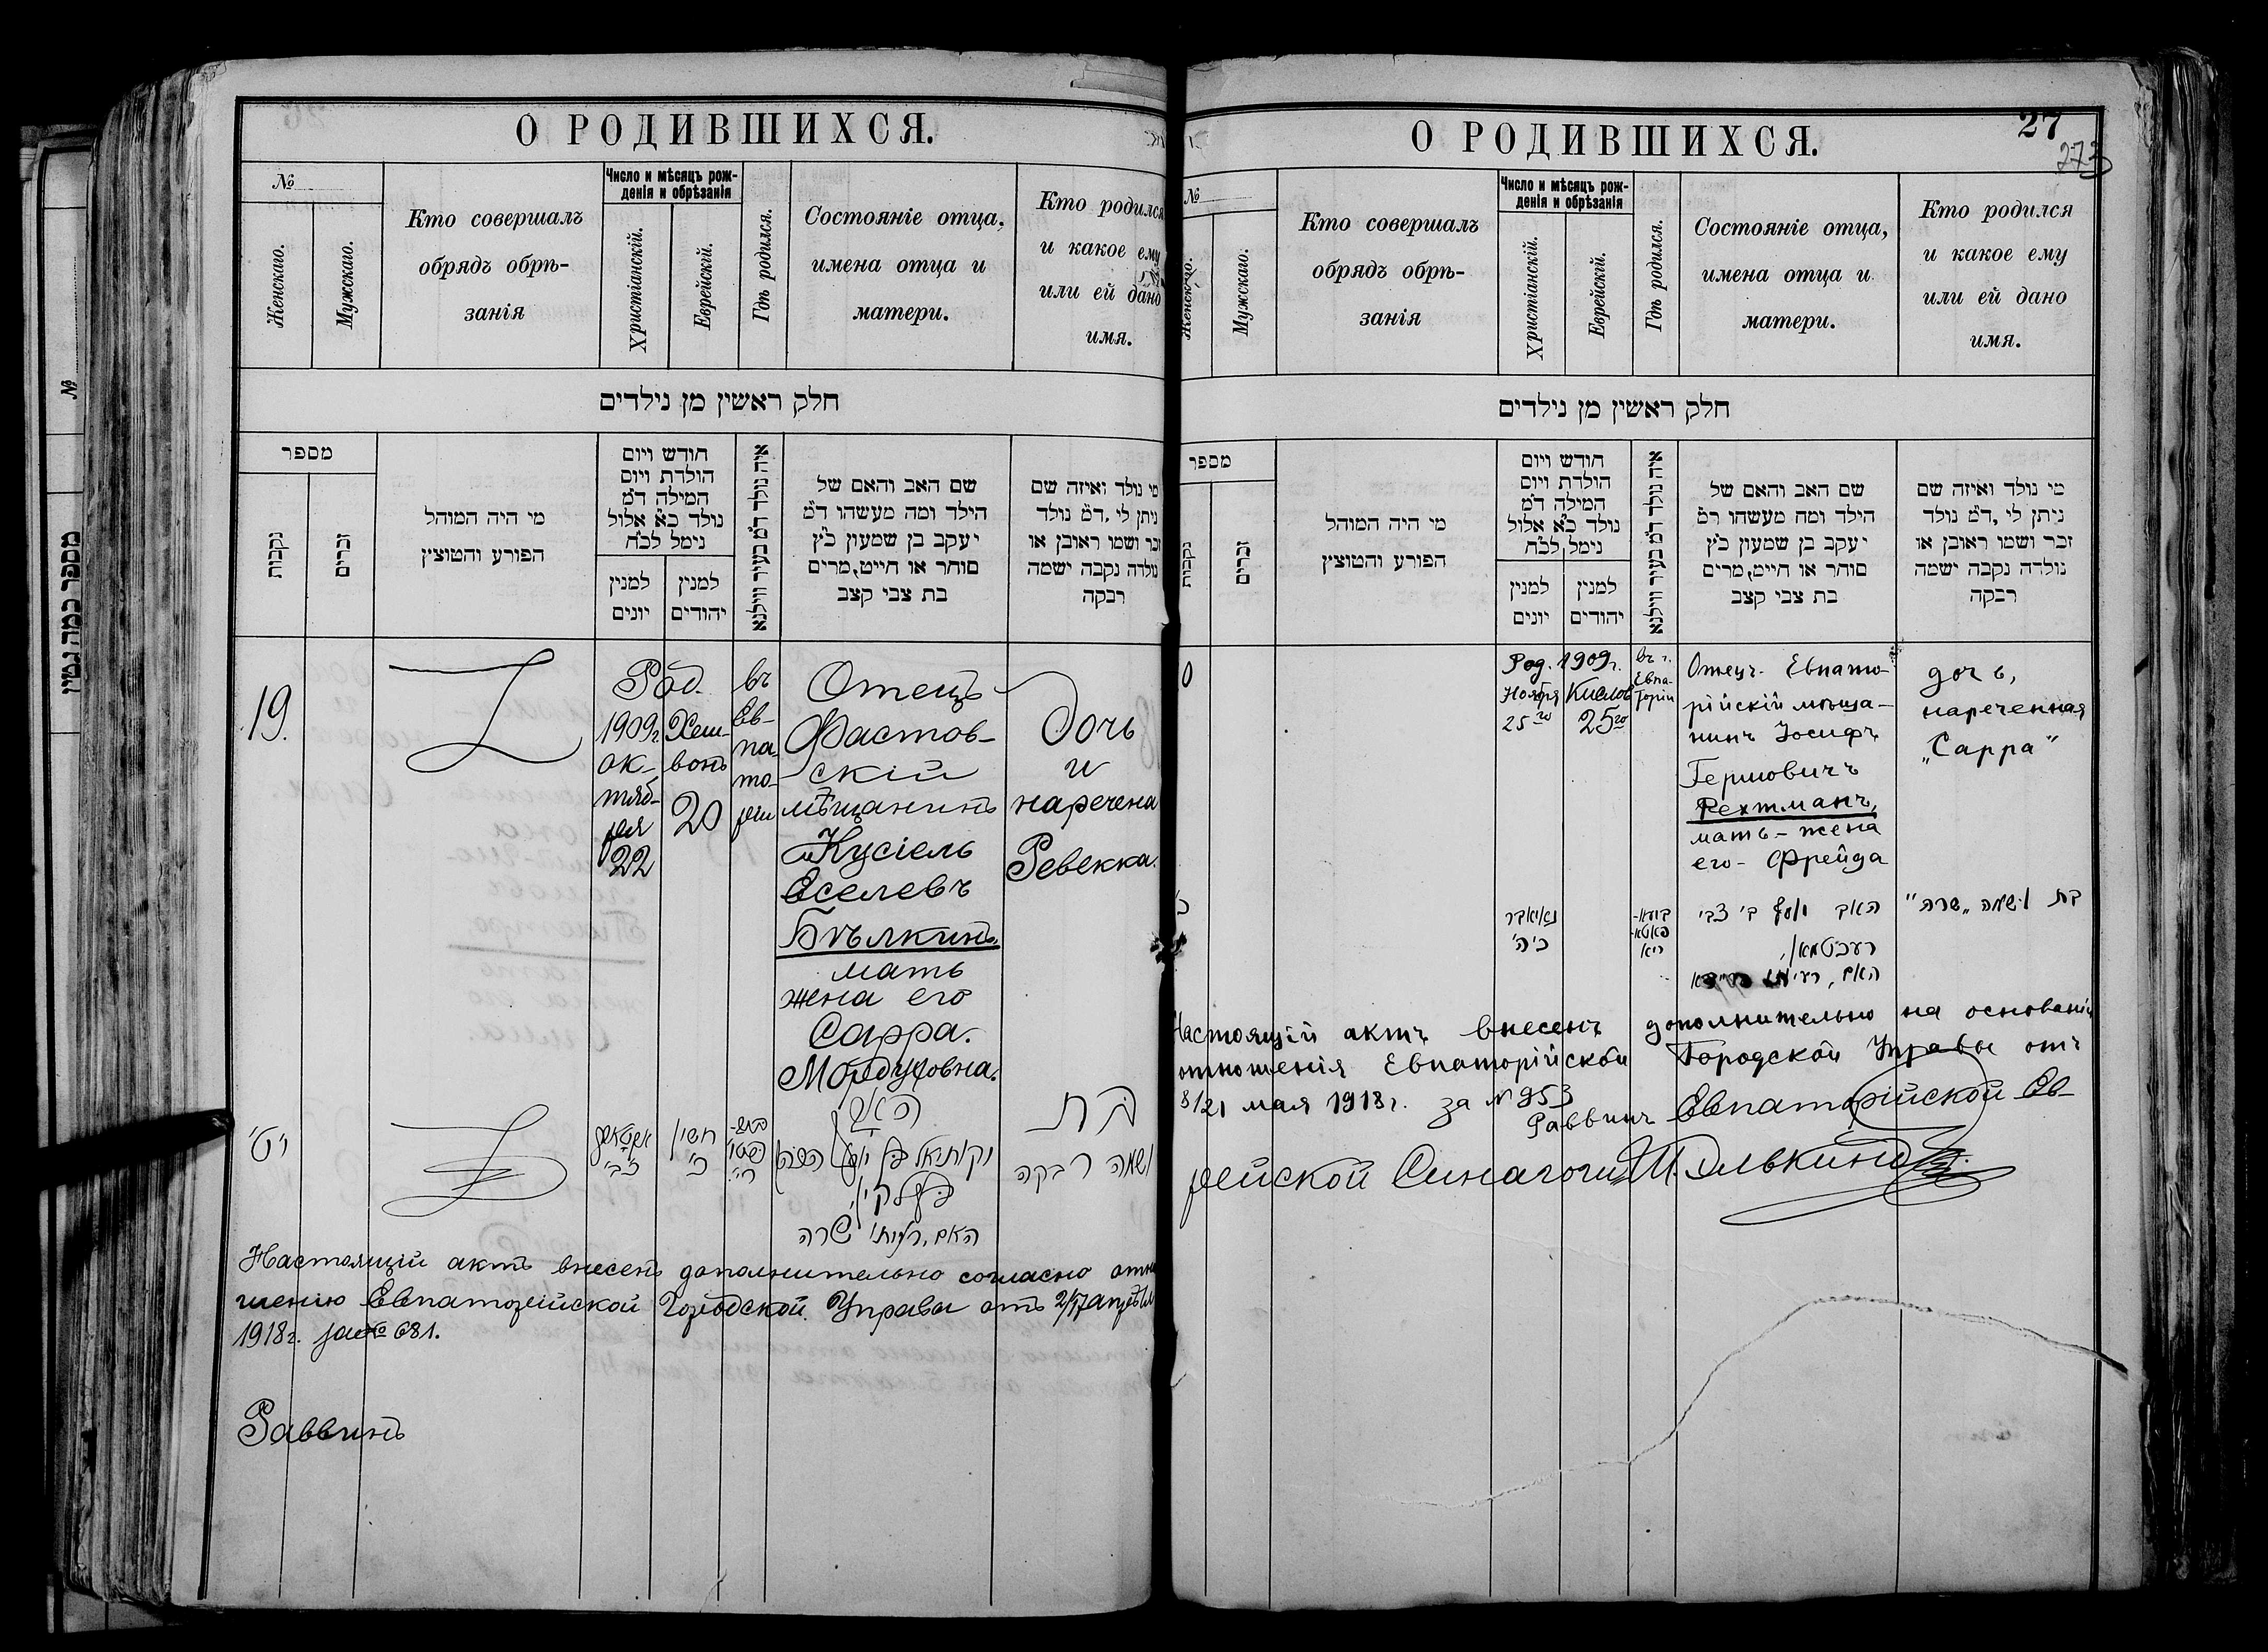 О РОДИВШИХСЯ.
№
Женскаго.
Мужскаго.
Кто совершалъ
обрядъ обрѣ-
занія
Число и мѣсяцъ рож-
денія и обрѣзанія
Христіанскій.
Еврейскій.
Гдѣ родился.
Состояніе отца,
имена отца и
матери.
Кто родился
и какое ему
или ей дано
имя.
חלק ראשין מן נילדים
מספר
נקבות
זכרים
מי היה המוהל
הפורע והטוצץ
חודש ויום
הולדת ויום
המילה ד״מ
נולד כ״א אלול
נימל לכ״ח
למנין
יונים
למנין
יהודים
איה נולד ד״מ בעיר ווילנא
שם האב והאם של
הילד ומה מעשהו ד״מ
יעקב בן שמעון כ״ץ
סוחר או חייט, מרים
בת צבי קצב
מי נולד ואיזה שם
ניתן לי, ד״מ נולד
זכר ושמו ראובן או
נולדה נקבה ישמה
רבקה
19.
Род.
1909г.
ок-
тяб-
ря
22
Хеш-
вонъ
20
въ
Ев-
па-
то-
ріи
Отецъ
Фастов-
скій
мѣщанинъ
Кусіель
Еселевъ
Бѣлкинъ,
мать
жена его
Сарра.
Мордуховна.
Дочь
и
наречена
Ревекка.
י״ט
חשון
כ׳
האב
האם,
שרה
בת
ושמה רבקה
Настоящій актъ внесенъ дополнительно согласно отно
шенію Евпаторійской Городской Управы отъ 2/17 апрѣля
1918г. за № 681.
Раввинъ
О РОДИВШИХСЯ.
27
273
№
Женскаго.
Мужскаго.
Кто совершалъ
обрядъ обрѣ-
занія
Число и мѣсяцъ рож-
денія и обрѣзанія
Христіанскій.
Еврейскій.
Гдѣ родился.
Состояніе отца,
имена отца и
матери.
Кто родился
и какое ему
или ей дано
имя.
חלק ראשין מן נילדים
מספר
נקבות
זכרים
מי היה המוהל
הפורע והטוצץ
חודש ויום
הולדת ויום
המילה ד״מ
נולד כ״א אלול
נימל לכ״ח
למנין
יונים
למנין
יהודים
איה נולד ד״מ בעיר ווילנא
שם האב והאם של
הילד ומה מעשהו ד״מ
יעקב בן שמעון כ״ץ
סוחר או חייט, מרים
בת צבי קצב
מי נולד ואיזה שם
ניתן לי, ד״מ נולד
זכר ושמו ראובן או
נולדה נקבה ישמה
רבקה
0
Род. 1909г.
Ноября
25го
Кислев
25го
въ г.
Евпа-
торіи
Отецъ Евпато-
рійскій мѣща-
нинъ Іосифъ
Гершовичъ
Рехтманъ,
мать – жена
его – Фрейда
дочь,
нареченная
„Сарра"
נאיאבר
כ״ה
האב יוסף ב׳ צבי
רעכטמאן,
האם,
בת ושמה „שרה"
Настоящій актъ внесенъ дополнительно на основаніи
отношенія Евпаторійской Городской Управы отъ
8/21 мая 1918г. за № 953
Раввинъ Евпаторійской Ев-
рейской Синагоги Ш. Элькинд